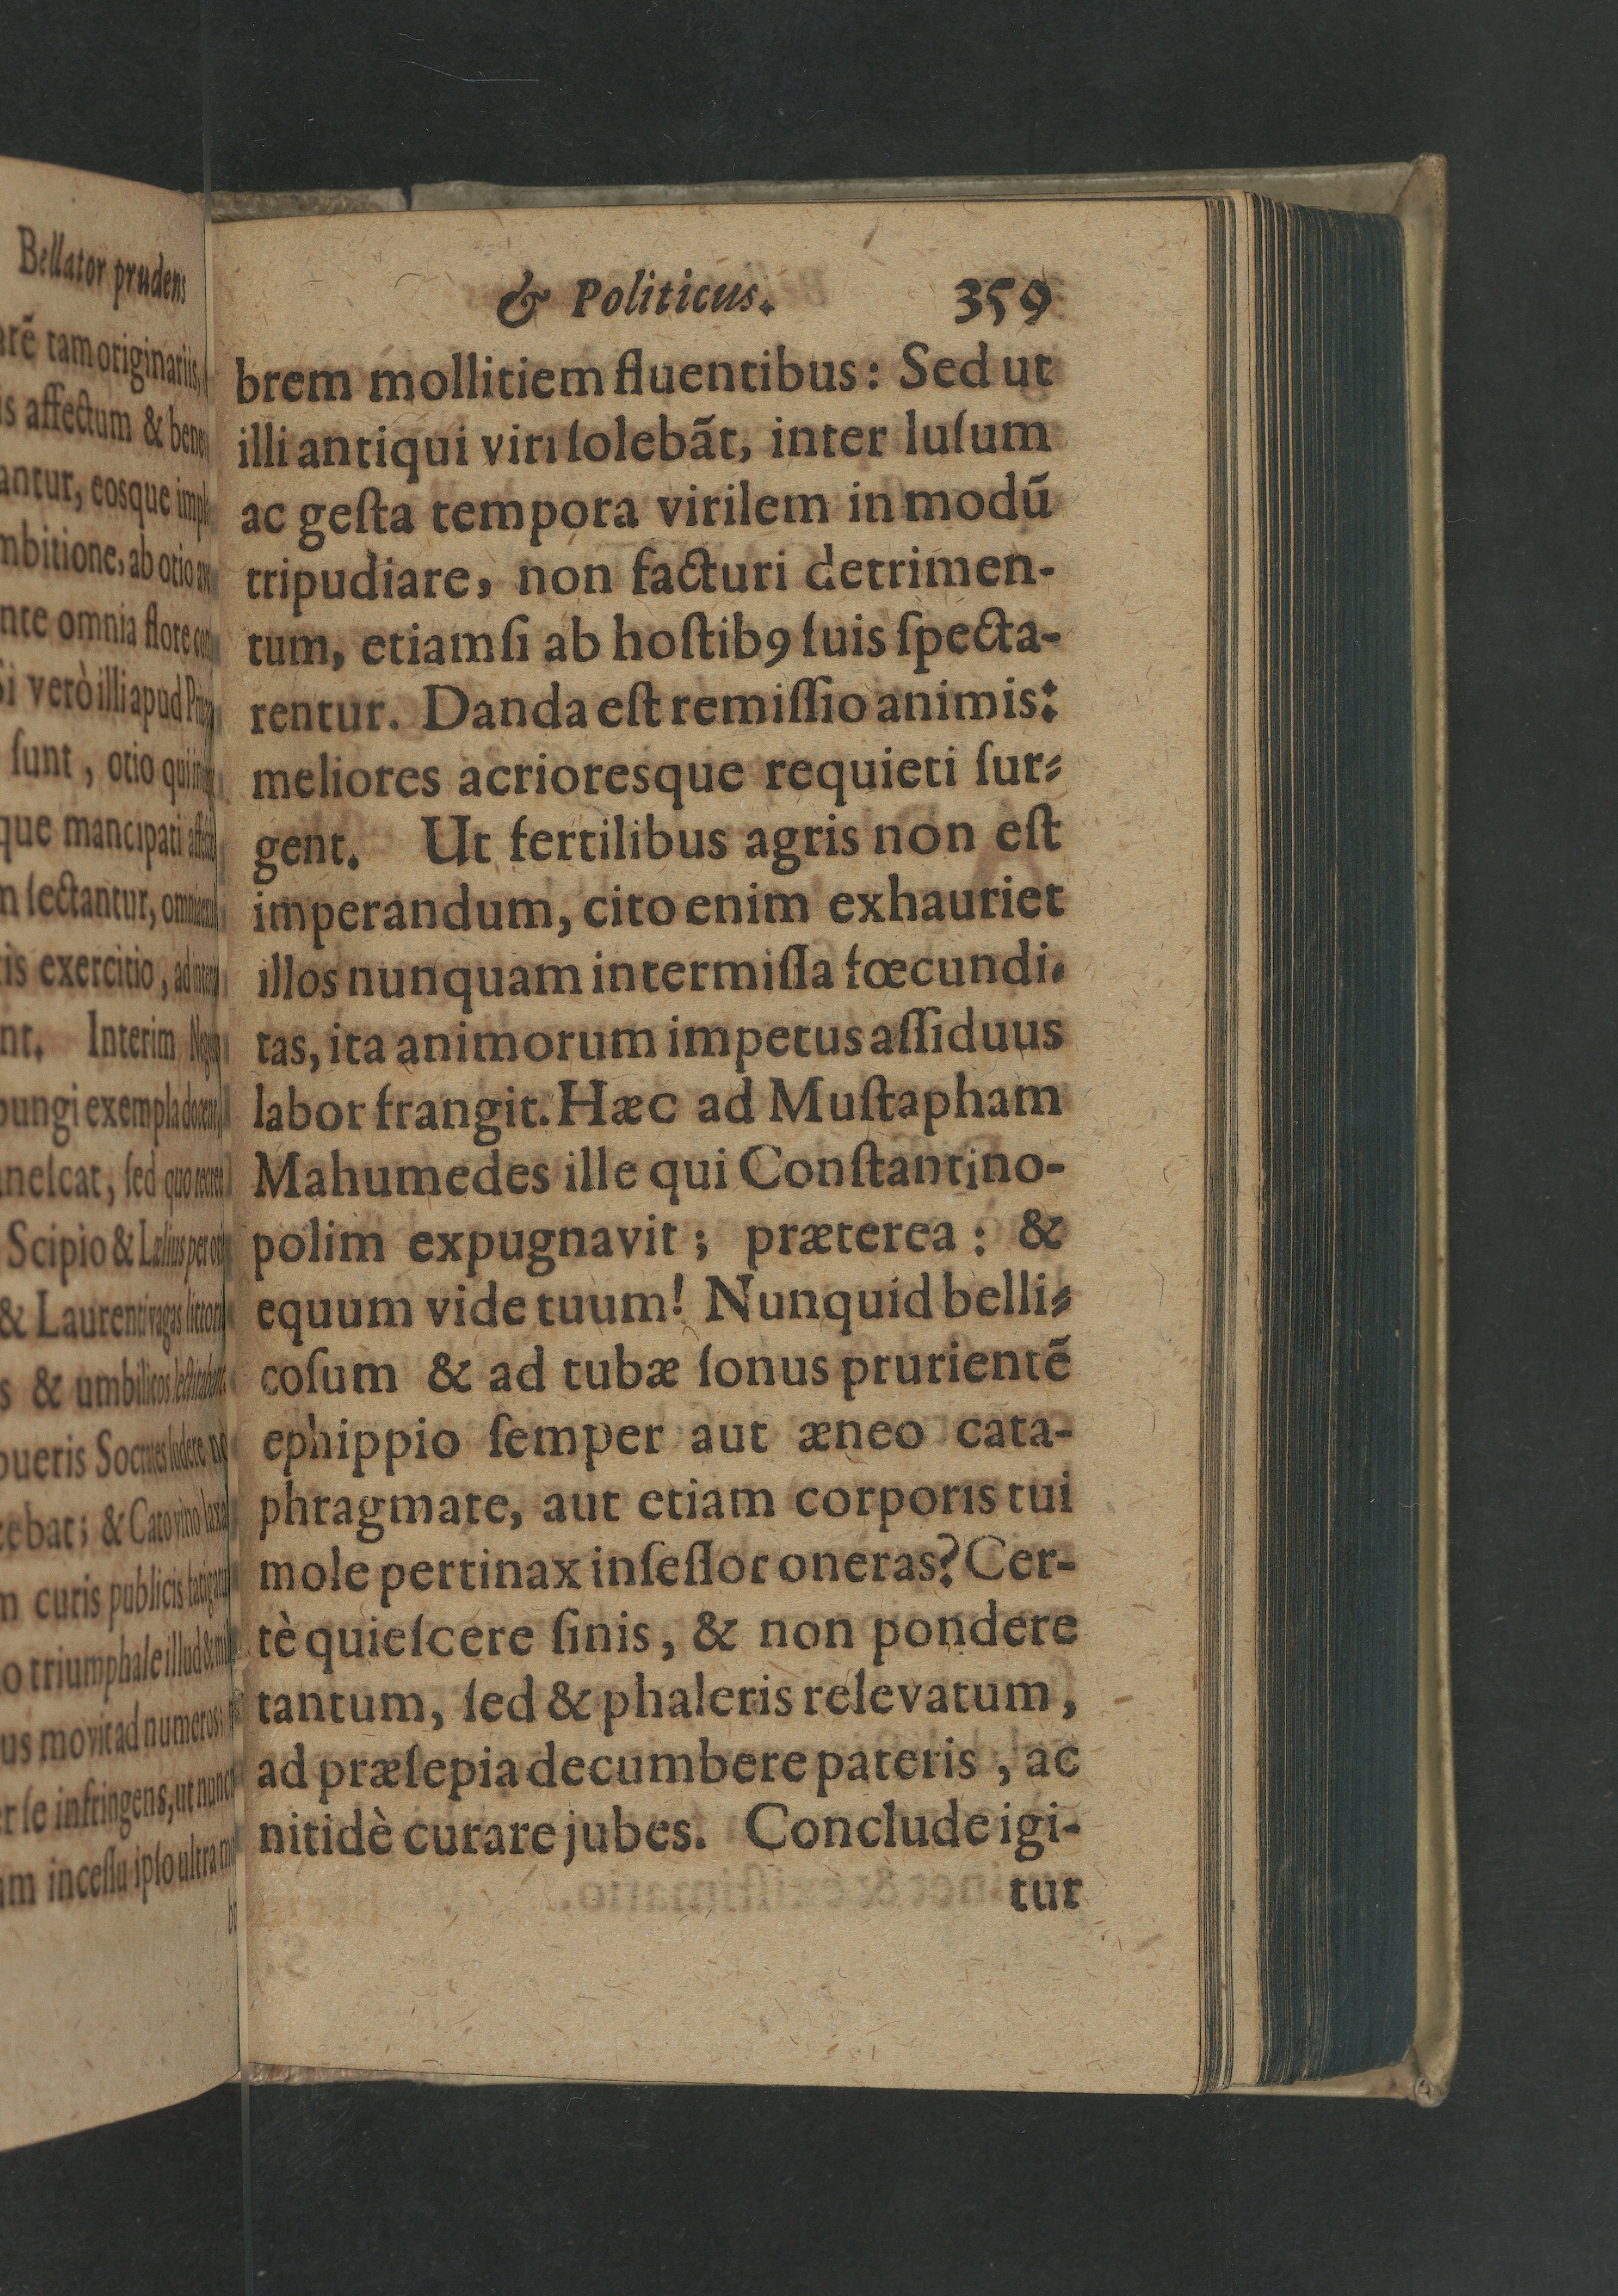 Bellator prudens
arē tam originariis,
is affectum & bene
antur, eosque
mbitione, ab otio
nte omnia flore
bi verò illi apud
ſunt, otio qui
que mancipati
n ſectantur,
tis exercitio, ad
nt. Interim
pungi exempla
aneſcat, ſed quo
Scipio & Lælius per
& Laurenti vagas
s & umbilicos
pueris Socrates ludere
cebat; & Cato vino
m curis publicis
o triumphale illud &
us movit ad numeros;
er ſe infringens, ut nunc
am inceſſu ipſo ultra
& Politicus. 359
brem mollitiem fluentibus: Sed ut
illi antiqui viri ſolebāt, inter luſum
ac geſta tempora virilem in modū
tripudiare, non facturi detrimen-
tum, etiamſi ab hoſtibꝰ ſuis ſpecta-
rentur. Danda eſt remiſſio animis:
meliores acrioresque requieti ſur-
gent. Ut fertilibus agris non eſt
imperandum, cito enim exhauriet
illos nunquam intermiſſa fœcundi-
tas, ita animorum impetus aſſiduus
labor frangit. Hæc ad Muſtapham
Mahumedes ille qui Conſtantino-
polim expugnavit; præterea: &
equum vide tuum! Nunquid belli-
coſum & ad tubæ ſonus prurientē
ephippio ſemper aut æneo cata-
phragmate, aut etiam corporis tui
mole pertinax inſeſſor oneras? Cer-
tè quieſcere ſinis, & non pondere
tantum, ſed & phaleris relevatum,
ad præſepia decumbere pateris, ac
nitidè curare jubes. Conclude igi-
tur